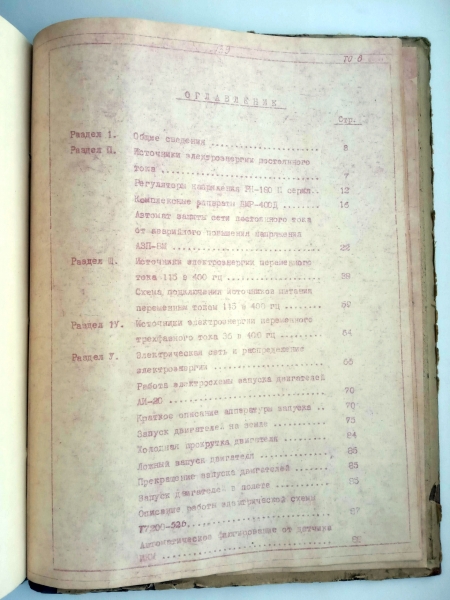 ОГЛАВЛЕНИЕ
Стр.
Раздел 1. Общие сведения 8
Раздел П. Источники электроэнергии постоянного
тока 7
Регуляторы напряжения РН-180 П серии.. 12
Комплексные аппараты ДМР-400Д 16
Автомат защиты сети постоянного тока
от аварийного повышения напряжения
АЗП-8М 22
Раздел Ш. Источники электроэнергии переменного
тока 115 в 400 гц 28
Схема подключения источников питания
переменным током 115 в 400 гц 60
Раздел 1У. Источники электроэнергии переменного
трехфазного тока 36 в 400 гц 64
Раздел У. Электрическая сеть и распределение
электроэнергии 68
Работа электросхемы запуска двигателей
АИ-20 70
Краткое описание аппаратуры запуска .. 70
Запуск двигателей на земле 73
Холодная прокрутка двигателя 84
Ложный запуск двигателя 85
Прекращение запуска двигателей 85
Запуск двигателей в полете 85
Описание работы электрической схемы
87
Автоматическое флюгирование от датчика
ИКМ